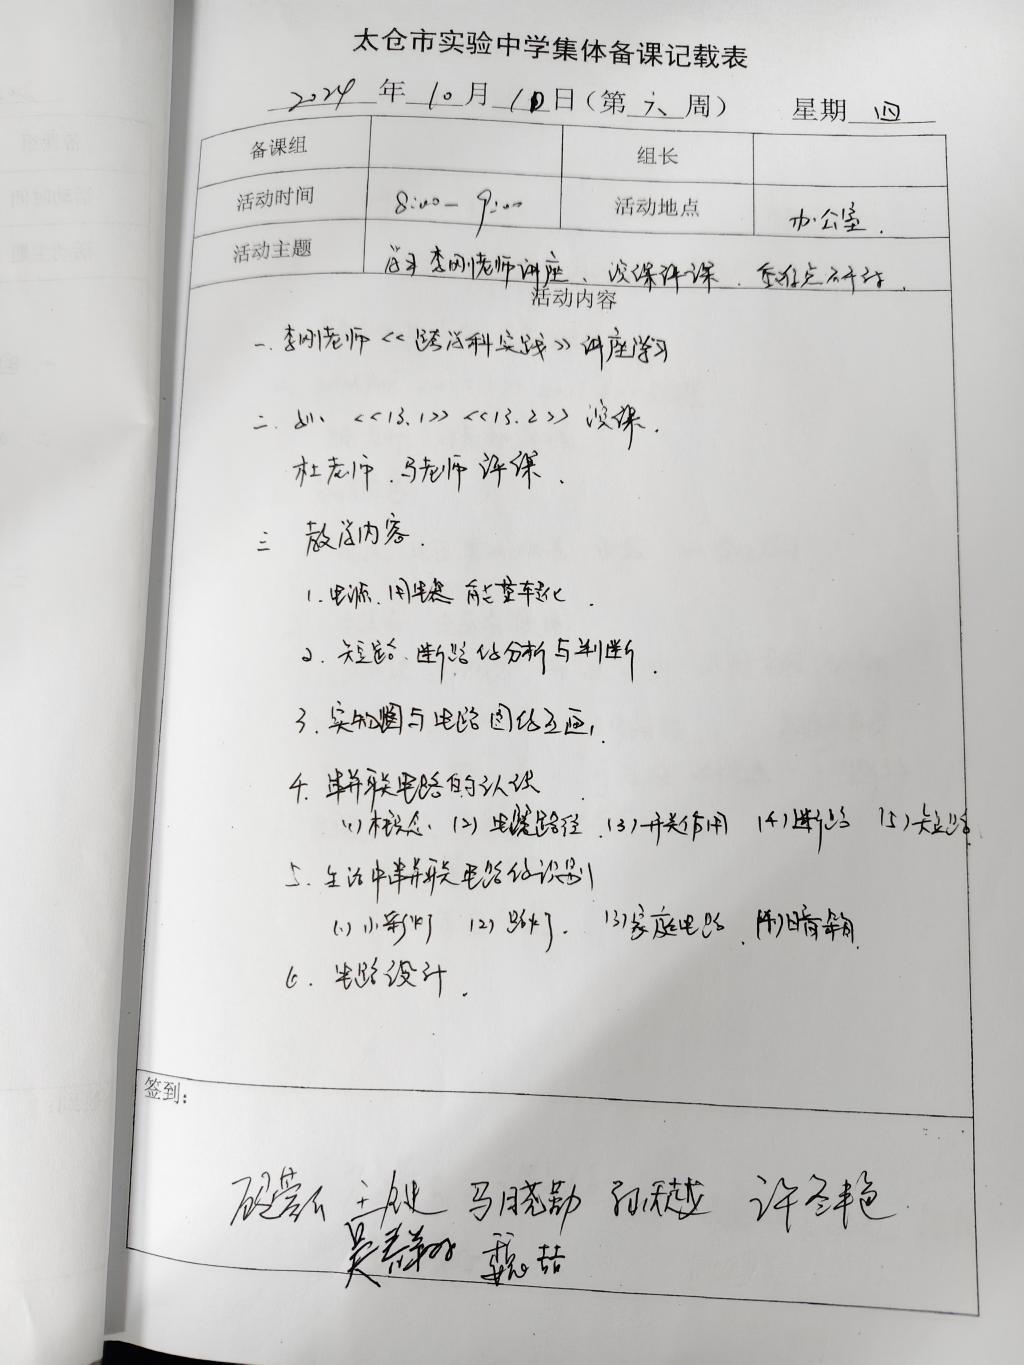 太仓市实验中学集体备课记载表
2024 年 10 月 10 日（第 六 周） 星期 四
备课组 组长
活动时间 8:00- 9:00 活动地点 办公室.
活动主题 学习李刚老师讲座、说课评课.重难点研讨.
活动内容
一.李刚老师<<跨学科实践>>讲座学习
二. <<13.1>> <<13.2>> 说课.
杜老师.马老师评课.
三 教学内容.
1.电源.用电器 能量转化.
2.短路.断路的分析与判断.
3.实物图与电路图的互画.
4.串并联电路的认识
(1)概念. (2)电流路径.(3)开关作用 (4)断路 (5)短路
5.生活中串并联电路的识别
(1)小彩灯 (2)路灯. (3)家庭电路.(4)暗箱
6.电路设计.
签到：
王健 马晓勤 许冬艳
魏喆